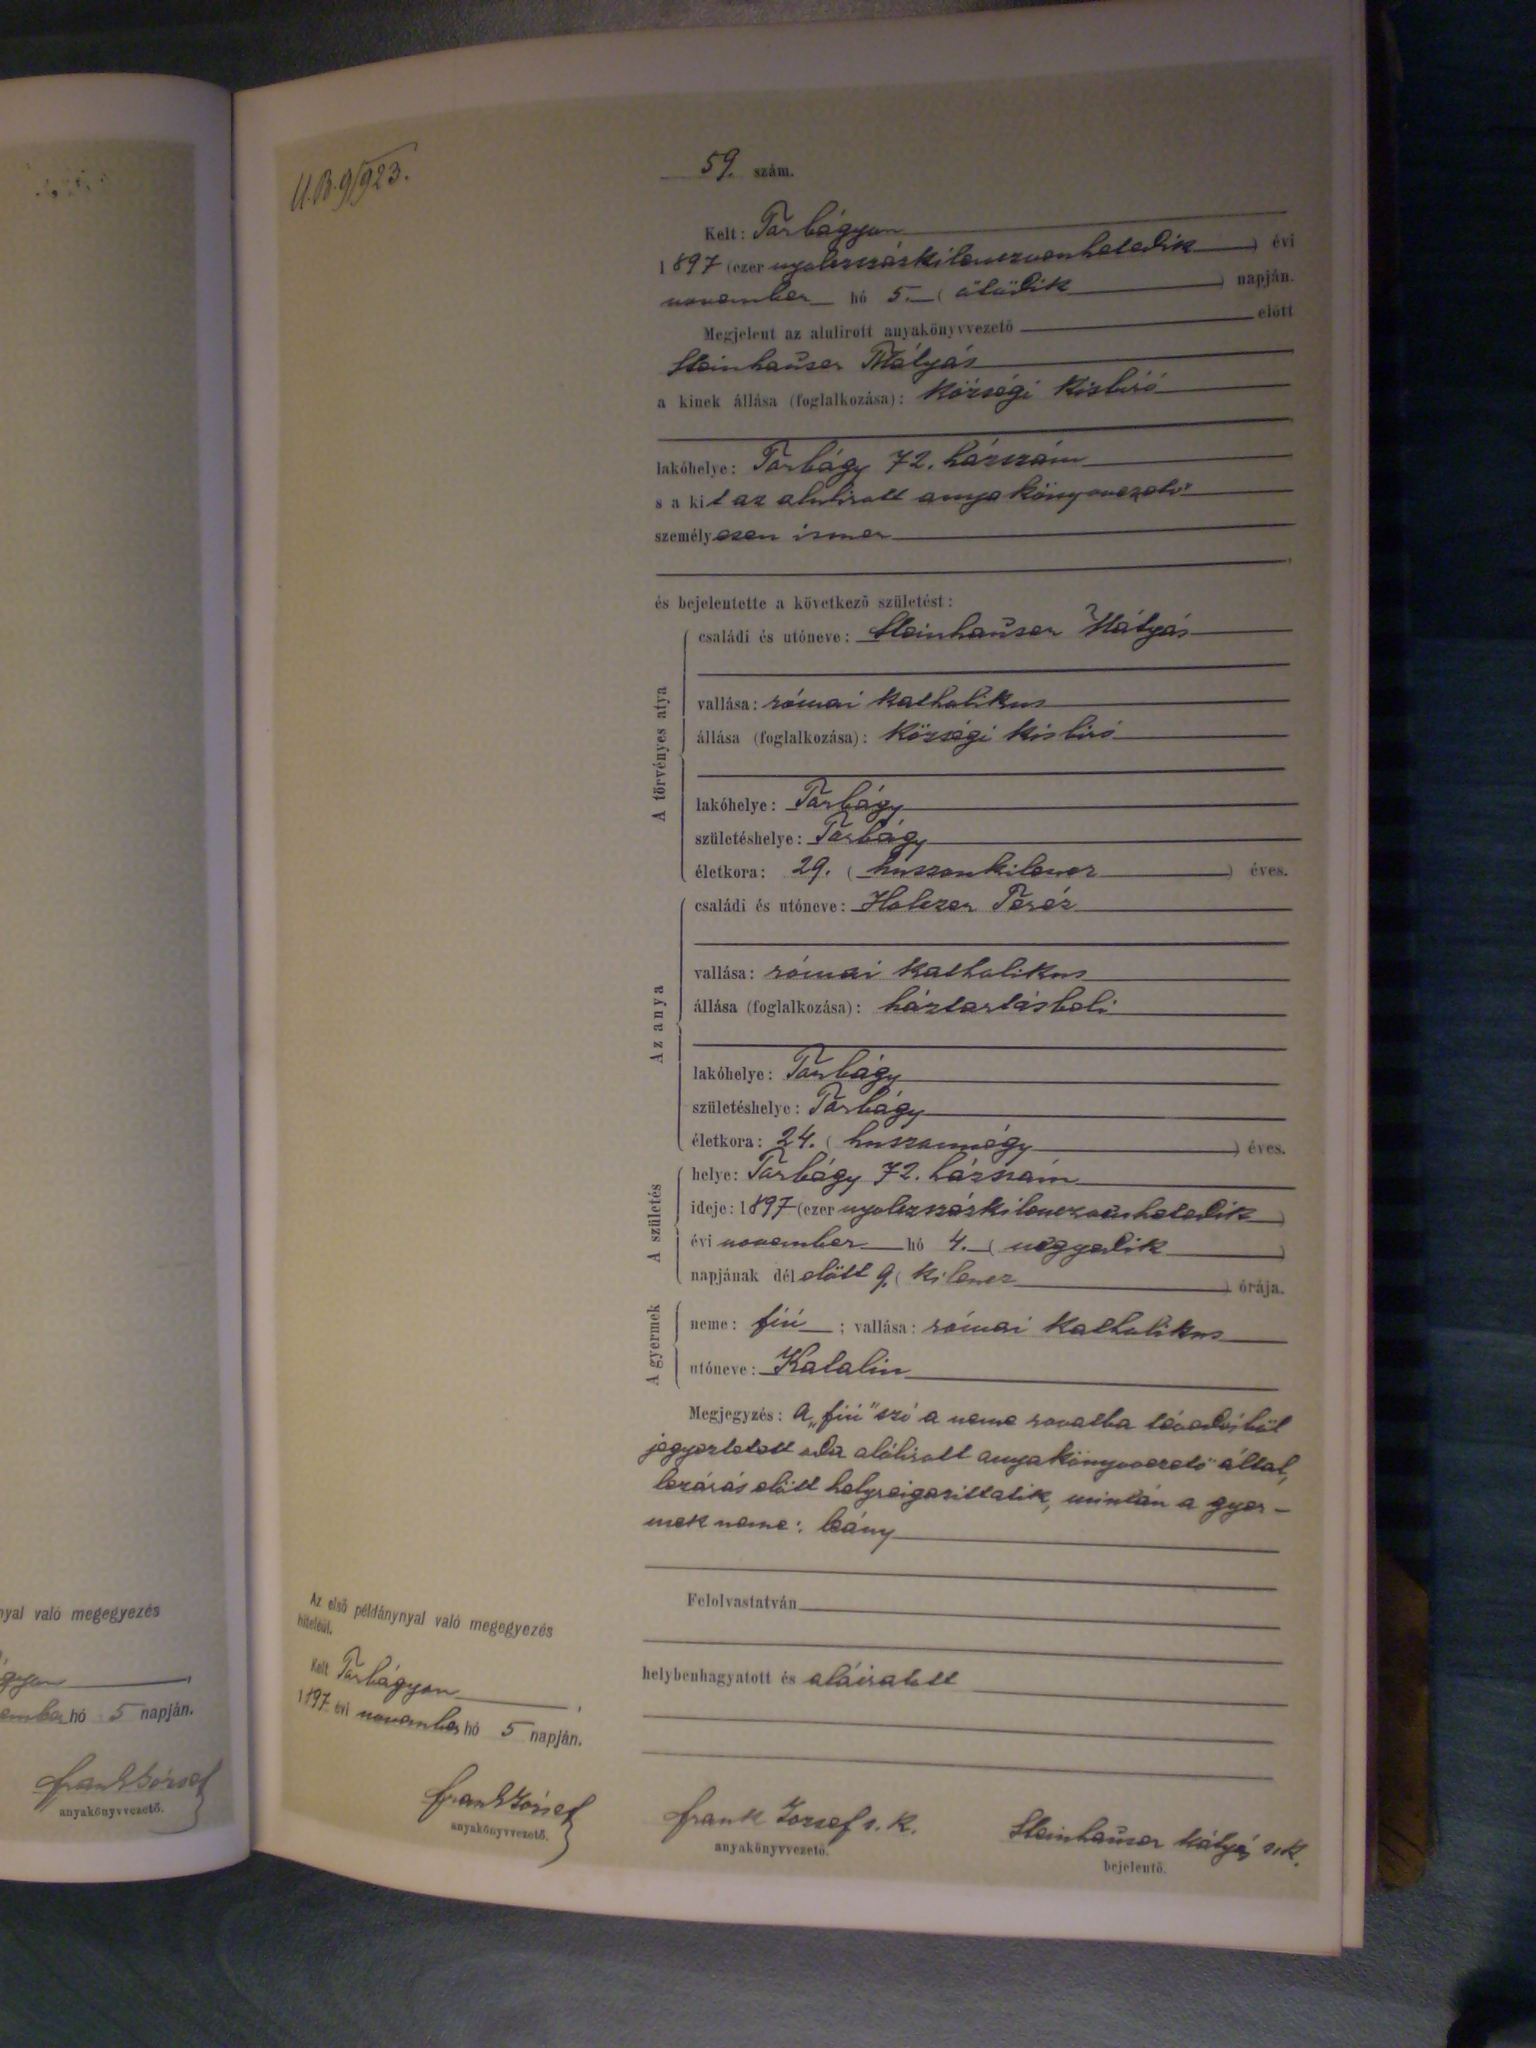 U.B. 9/923.
59. szám.
Kelt: Torbágyon
1897 (ezer nyolczszázkilenczvenhetedik) évi
november hó 5. (ötödik) napján.
Megjelent az alulirott anyakönyvvezető előtt
Steinhauser Mátyás
a kinek állása (foglalkozása): községi kisbiró
lakóhelye: Torbágy 72. házszám
s a kit az alulirott anyakönyvvezető
személyesen ismer
és bejelentette a következő születést:
A törvényes atya
családi és utóneve: Steinhauser Mátyás
vallása: római katholikus
állása (foglalkozása): községi kisbiró
lakóhelye: Torbágy
születéshelye: Torbágy
életkora: 29. (huszonkilencz) éves.
Az anya
családi és utóneve: Holczer Teréz
vallása: római katholikus
állása (foglalkozása): háztartásbeli
lakóhelye: Torbágy
születéshelye: Torbágy
életkora: 24. (huszonnégy) éves.
A születés
helye: Torbágy 72. házszám
ideje: 1897 (ezer nyolczszázkilenczvenhetedik)
évi november hó 4. (negyedik)
napjának délelőtt 9 (kilencz) órája.
A gyermek
neme: fiú; vallása: római katholikus
utóneve: Katalin
Megjegyzés: A „fiú" szó a neme rovatba tévedésből
jegyeztetett oda alólirott anyakönyvvezető által,
lezárás előtt helyreigazittatik, miután a gyer-
mek neme: leány
Felolvastatván
helybenhagyatott és aláiratott
Frank József s. k.
anyakönyvvezető.
Steinhauser Mátyás s.k.
bejelentő.
Az első példánynyal való megegyezés
hiteléül.
Kelt Torbágyon,
1897 évi november hó 5 napján.
Frank József
anyakönyvvezető.
nyal való megegyezés
ágyon,
ember hó 5 napján.
Frank József
anyakönyvvezető.